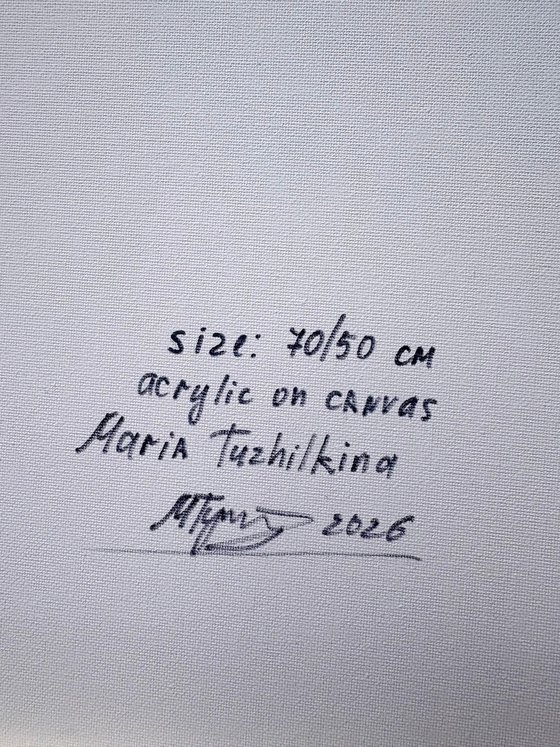 size: 70/50 cm
acrylic on canvas
Maria Tuzhilkina
2026